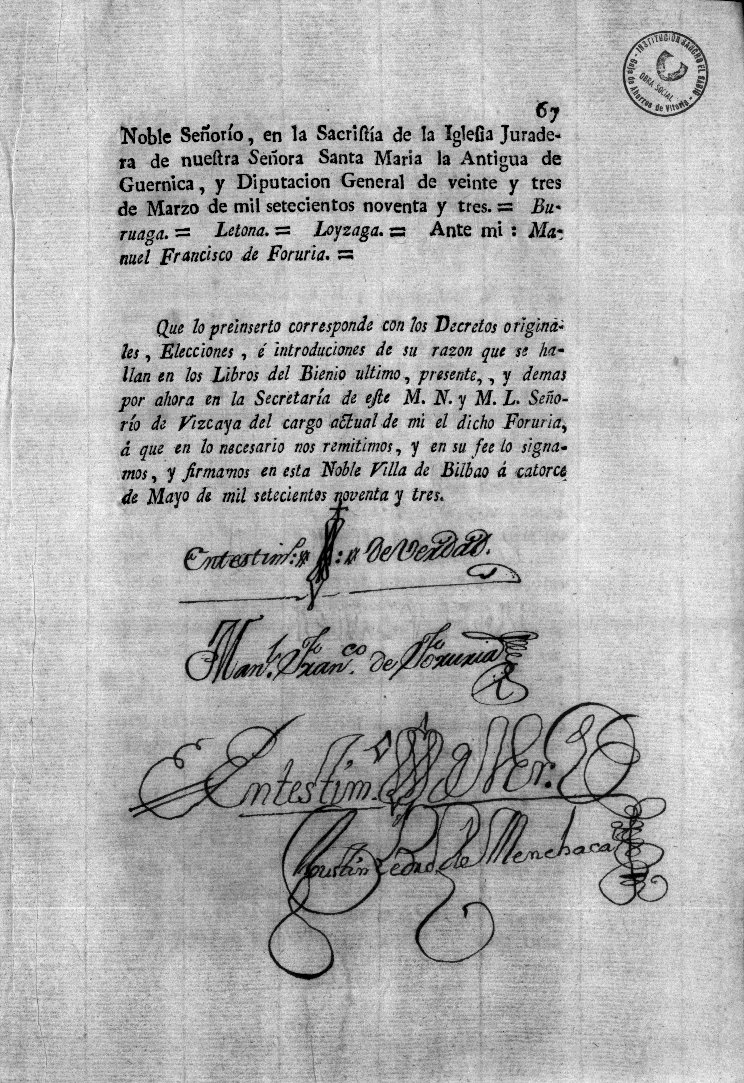 INSTITUCION SANCHO EL SABIO
OBRA SOCIAL
Caja de Ahorros de Vitoria
67
Noble Señorío, en la Sacriſtía de la Igleſia Jurade-
ra de nueſtra Señora Santa Maria la Antigua de
Guernica, y Diputacion General de veinte y tres
de Marzo de mil setecientos noventa y tres. = Bu-
ruaga. = Letona. = Loyzaga. = Ante mi : Ma-
nuel Francisco de Foruria. =
Que lo preinserto corresponde con los Decretos origina-
les, Elecciones, é introduciones de su razon que se ha-
llan en los Libros del Bienio ultimo, presente,, y demas
por ahora en la Secretaría de eſte M. N. y M. L. Seño-
río de Vizcaya del cargo actual de mi el dicho Foruria,
á que en lo necesario nos remitimos, y en su fee lo signa-
mos, y firmamos en esta Noble Villa de Bilbao á catorce
de Mayo de mil setecientos noventa y tres.
Entestim.º : : de Verdad.
Man.l Fran.co de Foruria
Entestim.º de Ver.d
Agustin Pedro de Menchaca